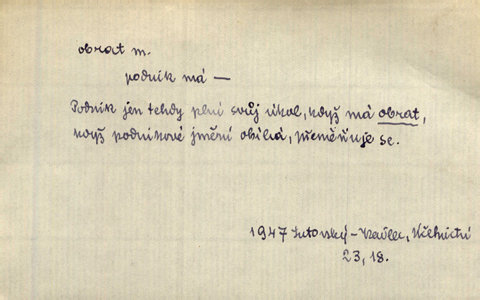 obrat m.
podnik má —
Podnik jen tehdy plní svůj úkol, když má obrat,
když podnikové jmění obíhá, přeměňuje se.
1947 Účetnictví
23, 18.